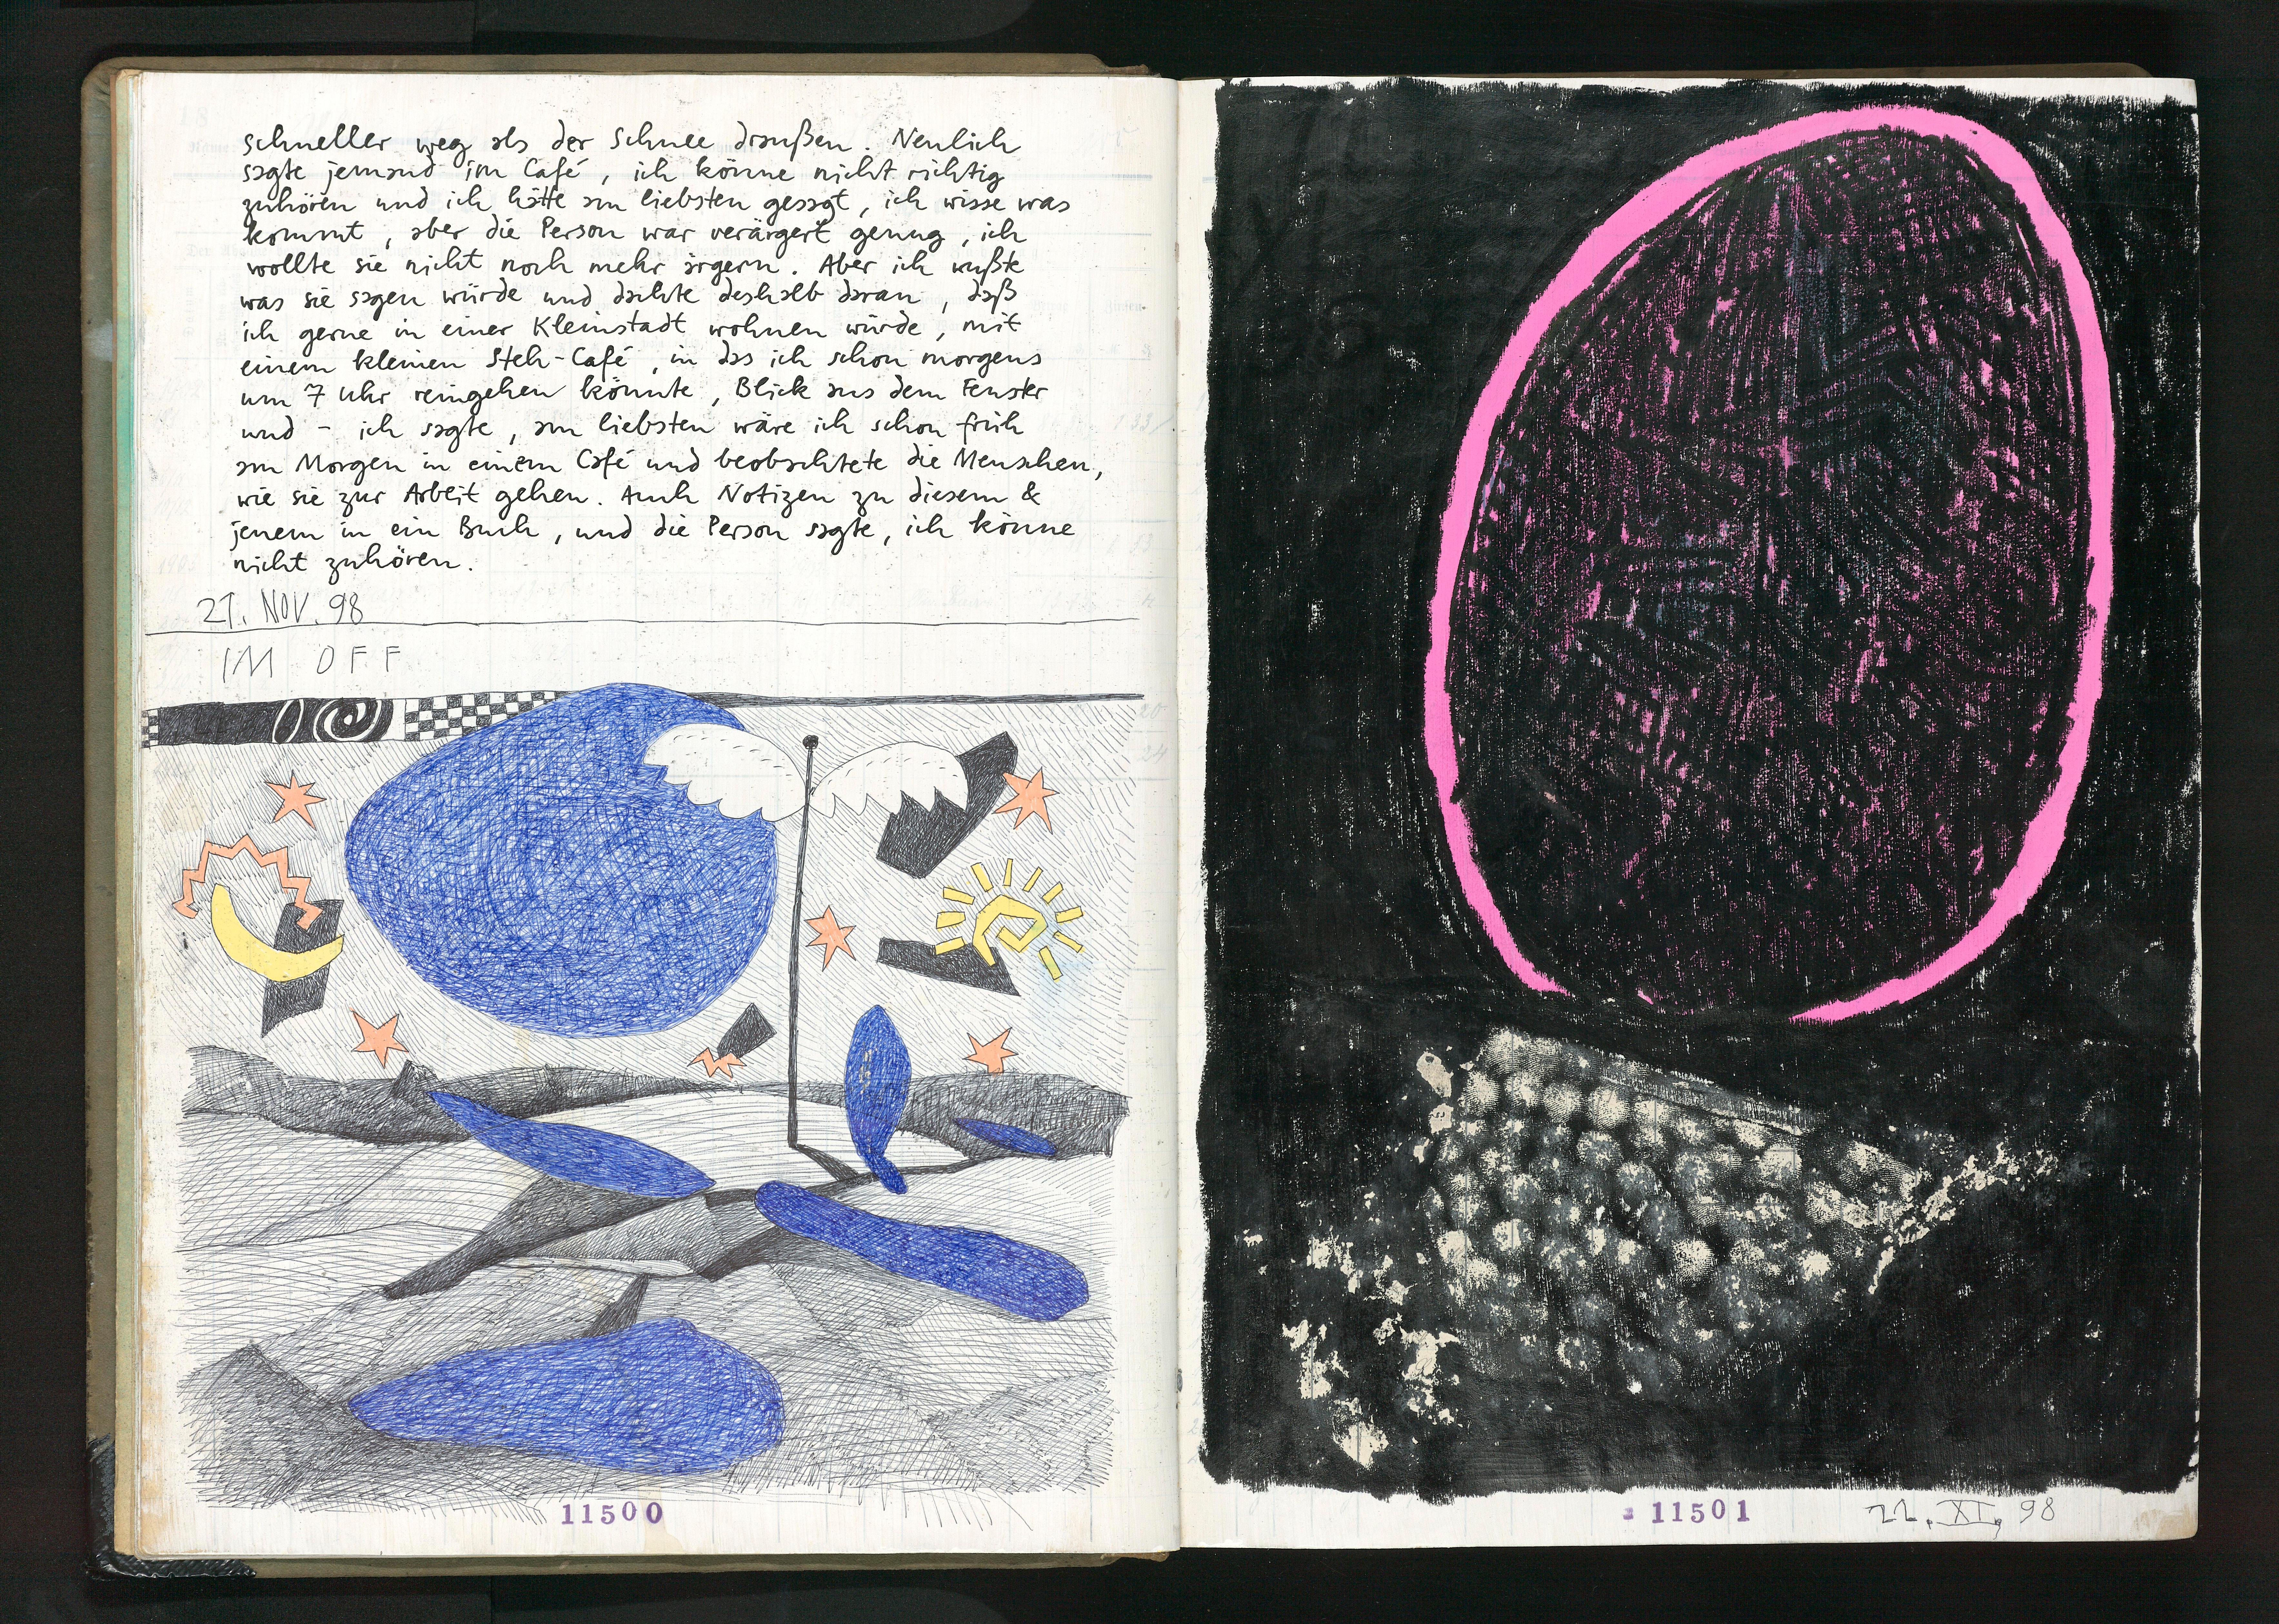 schneller weg als der Schnee draußen. Neulich
sagte jemand im Café, ich könne nicht richtig
zuhören und ich hätte am liebsten gesagt, ich wisse was
kommt, aber die Person war verärgert genug, ich
wollte sie nicht noch mehr ärgern. Aber ich wußte
was sie sagen würde und dachte deshalb daran, daß
ich gerne in einer Kleinstadt wohnen würde, mit
einem kleinen Steh-Café, in das ich schon morgens
um 7 Uhr reingehen könnte, Blick aus dem Fenster
und - ich sagte, am liebsten wäre ich schon früh
am Morgen in einem Café und beobachtete die Menschen,
wie sie zur Arbeit gehen. Auch Notizen zu diesem &
jenem in ein Buch, und die Person sagte, ich könne
nicht zuhören.
21. NOV. 98
IM OFF
11500
11501
22. XI. 98